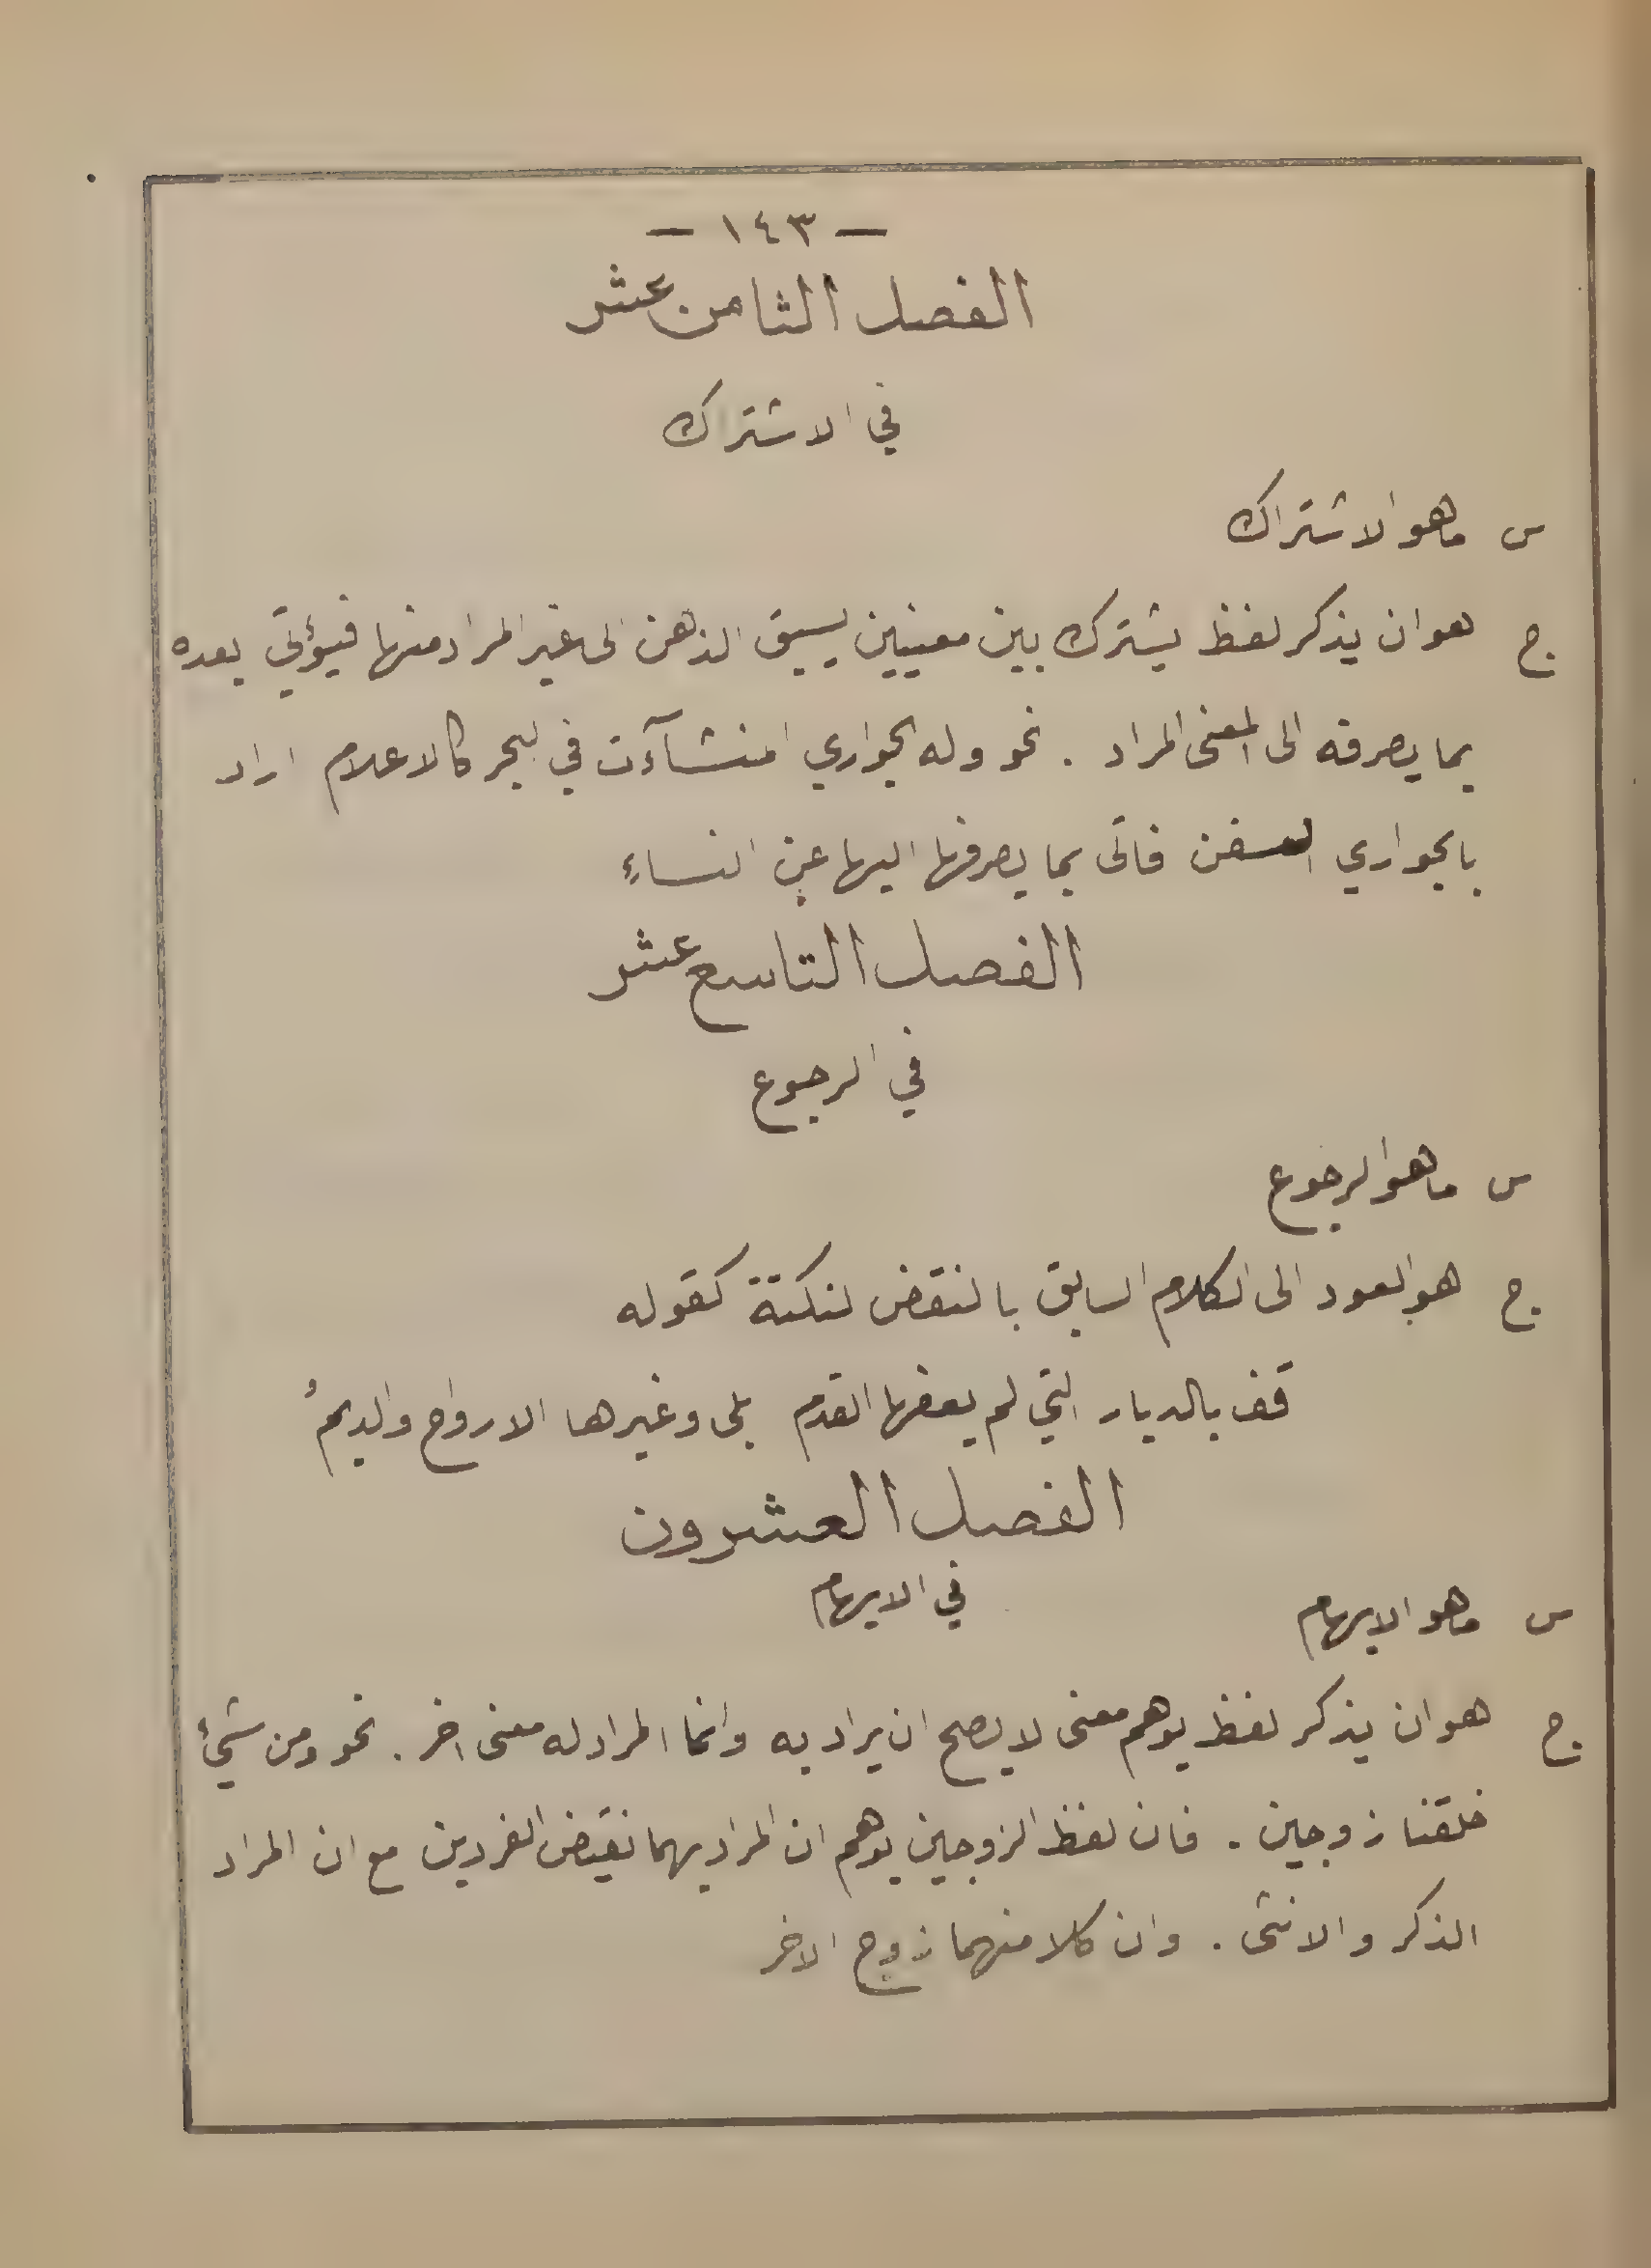 — ١٤٣ —
الفصل الثامن عشر
في الاشتراك
س ما هو الاشتراك
ج هو ان يذكر لفظ يشترك بين معنيين يسبق الذهن الى غير المراد منها فيؤتى بعده
بما يصرفه الى المعنى المراد . نحو وله الجواري المنشآءت في البحر كالاعلام اراد
بالجواري السفن فاتى بما يصرفها اليها عن النساءِ
الفصل التاسع عشر
في الرجوع
س ما هو الرجوع
ج هو العود الى الكلام السابق بالنقض لنكتة كقوله
قف بالديار التي لم يعفها القدم بلى وغيرها الارواح والديمُ
الفصل العشرون
في الايهام
س ما هو الايهام
ج هو ان يذكر لفظ يوهم معنى لا يصح ان يراد به وانما المراد له معنى اخر . نحو ومن شيءٍ
خلقنا زوجين . فان لفظ الزوجين يوهم ان المراد بهما نقيض الفردين مع ان المراد
الذكر والانثى . وان كلا منهما زوج الاخر